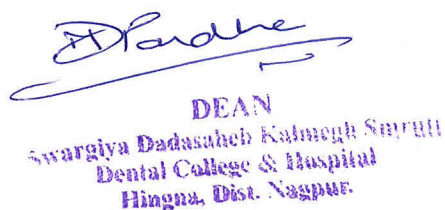 DPardhe
DEAN
Swargiya Dadasaheb Kalmegh Smruti
Dental College & Hospital
Hingna, Dist. Nagpur.